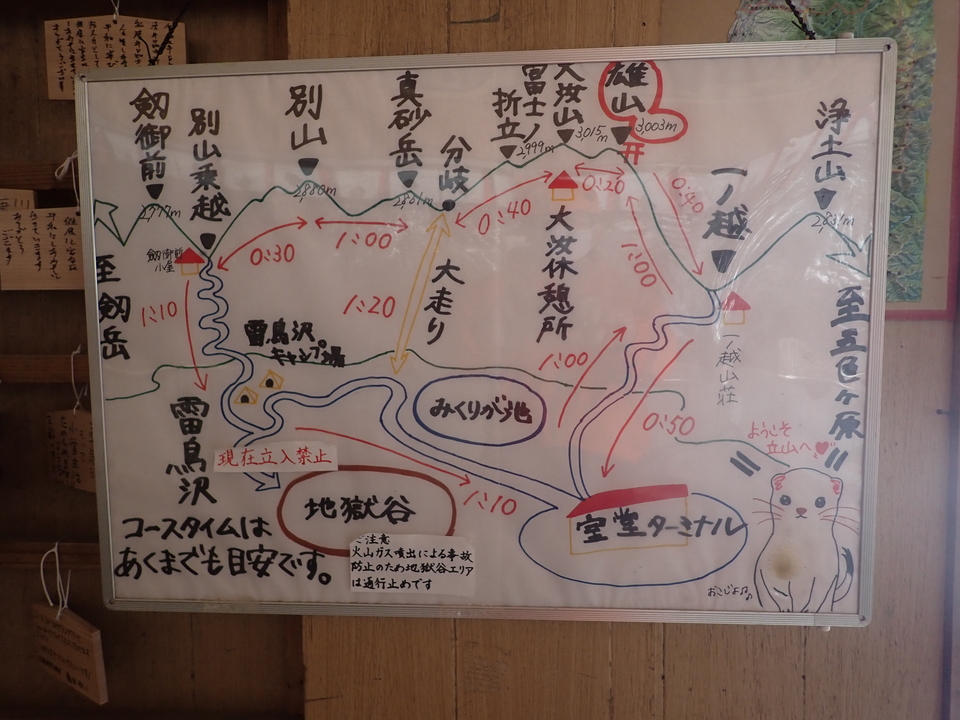 劔御前
2,777m
別山乗越
別山
2,880m
真砂岳
2,861m
分岐
富士ノ折立
2,999m
大汝山
3,015m
雄山
3,003m
浄土山
2,831m
一ノ越
至劔岳
劔御前小屋
0:30
1:00
0:40
0:20
0:40
1:00
大汝休憩所
大走り
1:20
1:10
雷鳥沢
キャンプ場
一ノ越山荘
至五色ヶ原
みくりが池
1:00
0:50
雷鳥沢
現在立入禁止
地獄谷
1:10
室堂ターミナル
ようこそ
立山へ
コースタイムは
あくまでも目安です。
ご注意
火山ガス噴出による事故
防止のため地獄谷エリア
は通行止めです
おこじょ